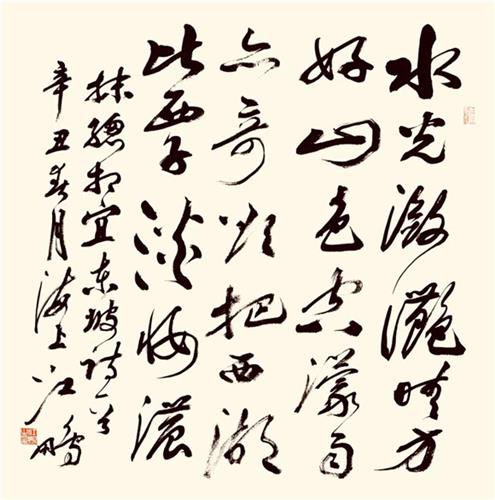 水光瀲灧晴方
好山色空濛雨
亦奇欲把西湖
比西子淡妝濃
抹總相宜東坡詩一首
辛丑春月海上江鵬